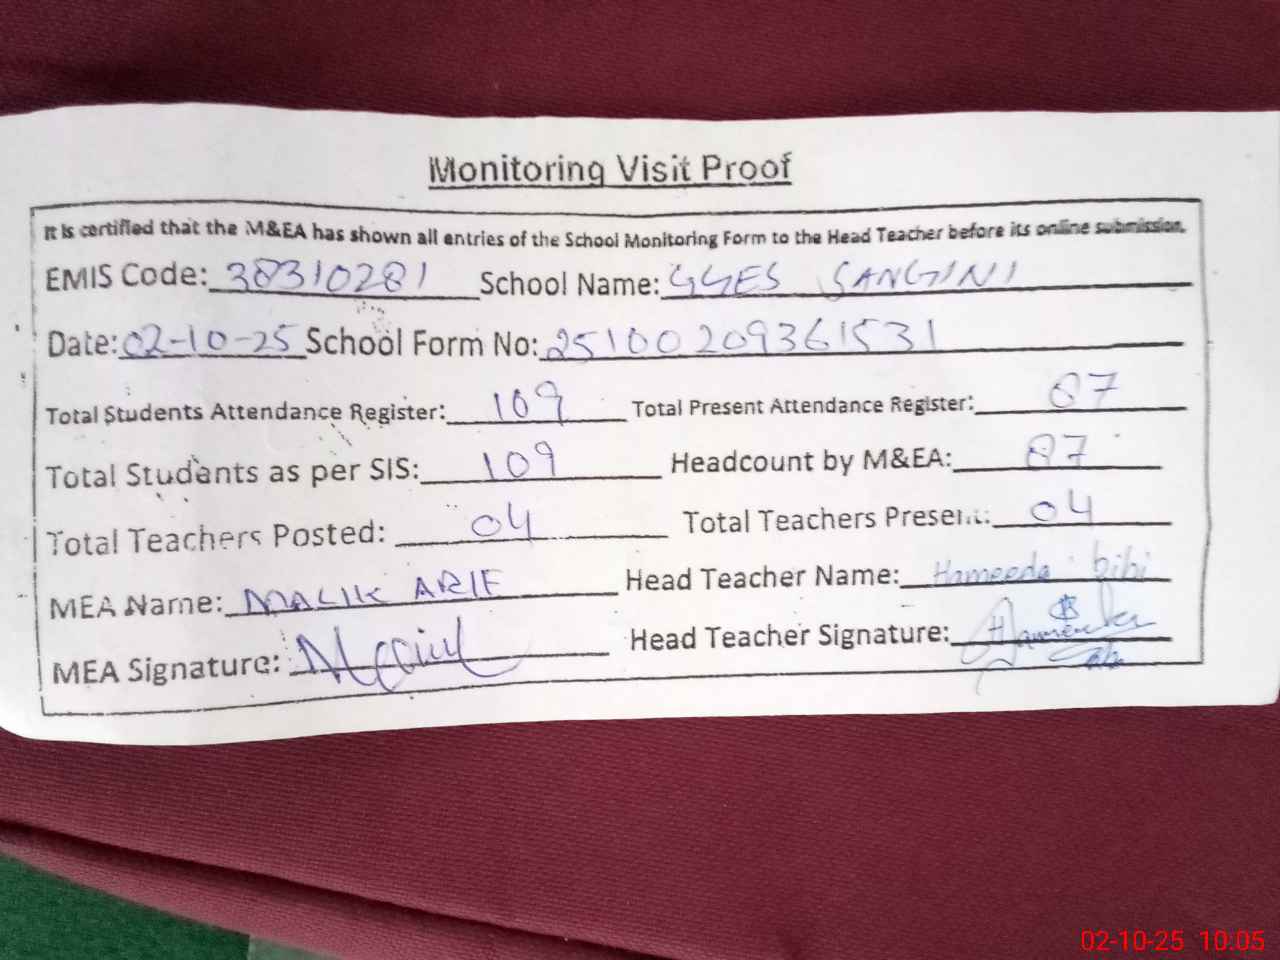 Monitoring Visit Proof
It is certified that the M&EA has shown all entries of the School Monitoring Form to the Head Teacher before its online submission.
EMIS Code: 38310281 School Name: GGES SANGINI
Date: 02-10-25 School Form No: 25100209361531
Total Students Attendance Register: 109 Total Present Attendance Register: 87
Total Students as per SIS: 109 Headcount by M&EA: 87
Total Teachers Posted: 04 Total Teachers Present: 04
MEA Name: MALIK ARIF Head Teacher Name: Hameeda bibi
MEA Signature: Head Teacher Signature:
02-10-25 10:05